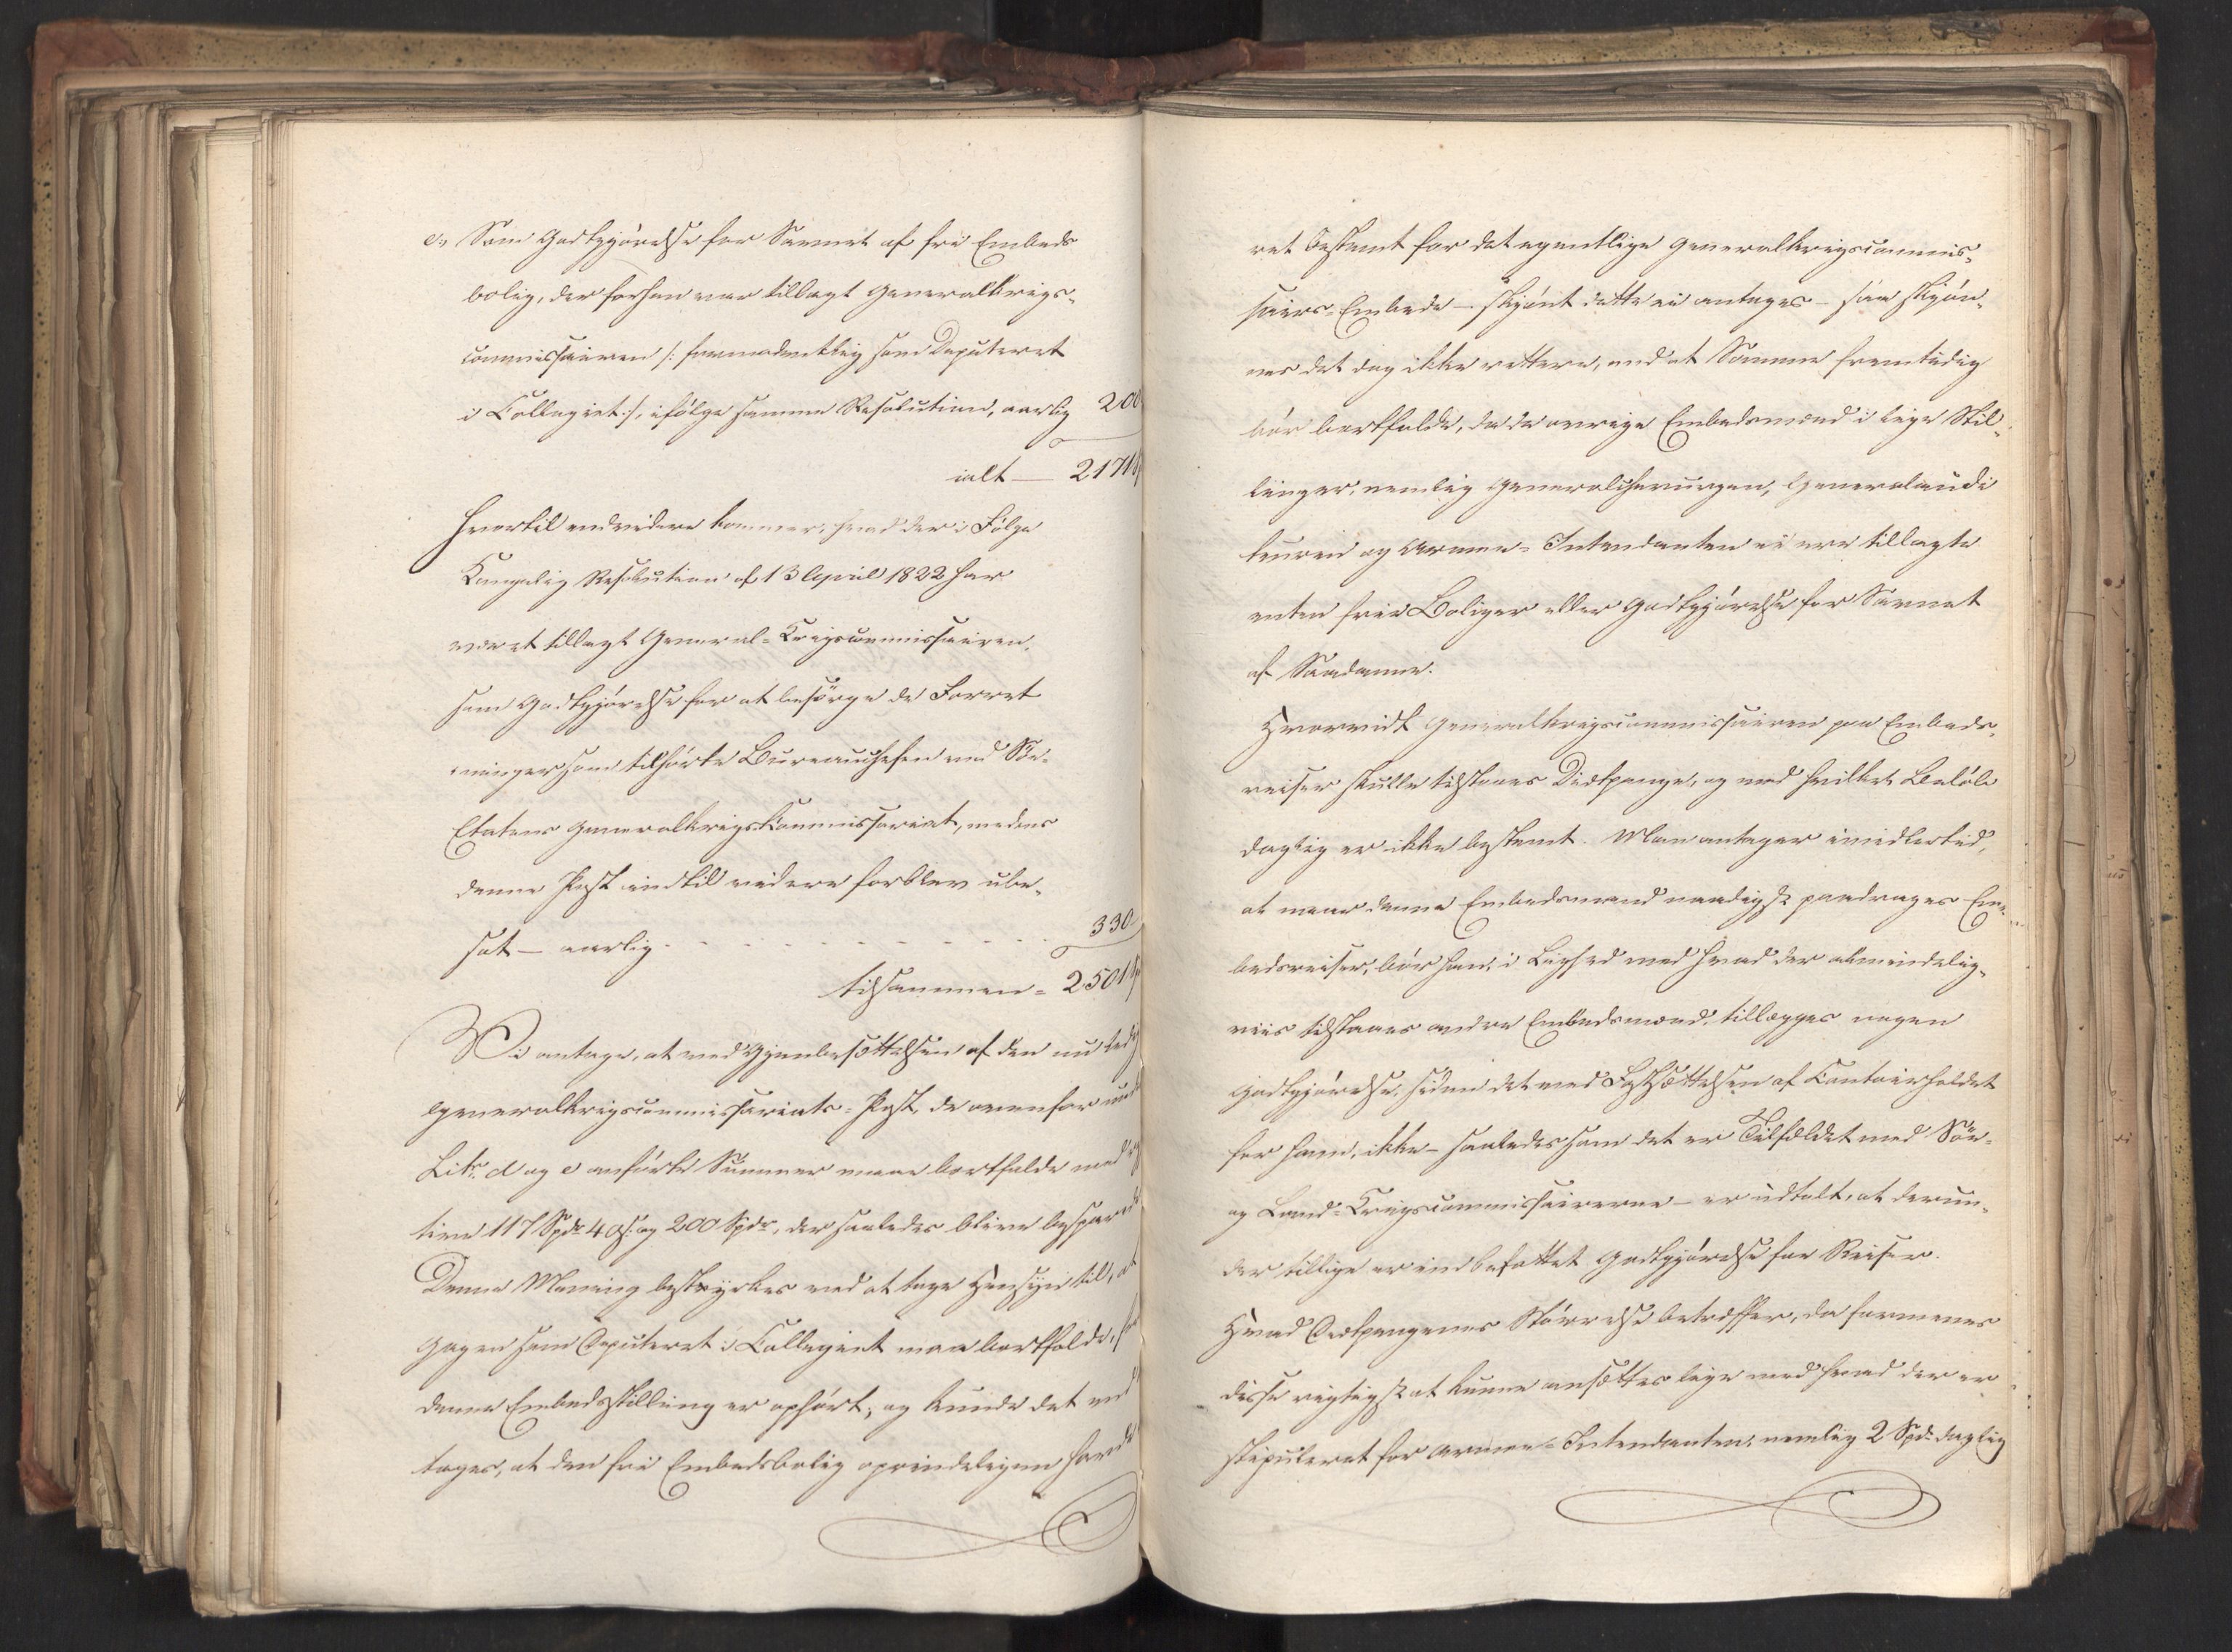 e, Som Godtgjörelse for Savnet af fri Embeds
bolig, der forhen var tillagt Generalkrigs-
commissairen /: formodentlig som Deputeret
i Collegiet :/, ifölge samme Resolution, aarlig 200
ialt — 2171
hvortil endvidere kommer, hvad der i Fölge
Kongelig Resolution af 13 April 1822 har
været tillagt General-Krigscommissairen,
som Godtgjörelse for at besörge de Forret
ninger som tilhörte Bureauchefen ved Söe-
Etatens Generalkrigskommissariat, medens
denne Post indtil videre forblev ube-
sat — aarlig 330
tilsammen = 2501
Vi antage, at ved Gjenbesættelsen af den nu ledige
Generalkrigscommissariats-Post, de ovenfor under
Litr. d og e anförte Summer maae bortfalde med
117 Spdr 40 s. og 200 Spdr, der saaledes blive besparede
Denne Mening bestyrkes ved at tage Hensyn til, at
Gagen som Deputeret i Collegiet maa bortfalde,
denne Embedsstilling er ophört; og kunde det end
tages, at den frie Embedsbolig oprindeligen havde
ret bestemt for det egentlige Generalkrigscommis-
sairs-Embede — skjönt dette ei antages — saa skjön-
nes det dog ikke rettere, end at Samme fremtidig
bör bortfalde, da de övrige Embedsmænd i lige Stil-
linger, nemlig Generalchirurgen, Generalaudi
teuren og Armee-Intendanten ei ere tillagte
enten frie Boliger eller Godtgjörelse for Savnet
af Saadanne.
Hvorvidt Generalkrigscommissairen paa Embeds-
reiser skulle tilstaaes Diætpenge, og med hvilket Belöb
daglig er ikke bestemt. Man antager imidlertid,
at naar denne Embedsmand naadigst paadrages Em-
bedsreiser, bör han, i Lighed med hvad der almindelig-
viis tilstaaes andre Embedsmænd, tillægges nogen
Godtgjörelse, siden det ved Fastsættelsen af Contoirholdet
for ham, ikke — saaledes som det er Tilfældet med Söe-
og Land-Krigscommissairerne — er udtalt, at derun-
der tillige er indbefattet Godtgjörelse for Reiser.
Hvad Diætpengenes Störrelse betræffer, da formenes
disse rigtigst at kunne ansættes lige med hvad der er
stipuleret for Armee-Intendanten, nemlig 2 Spdr daglig